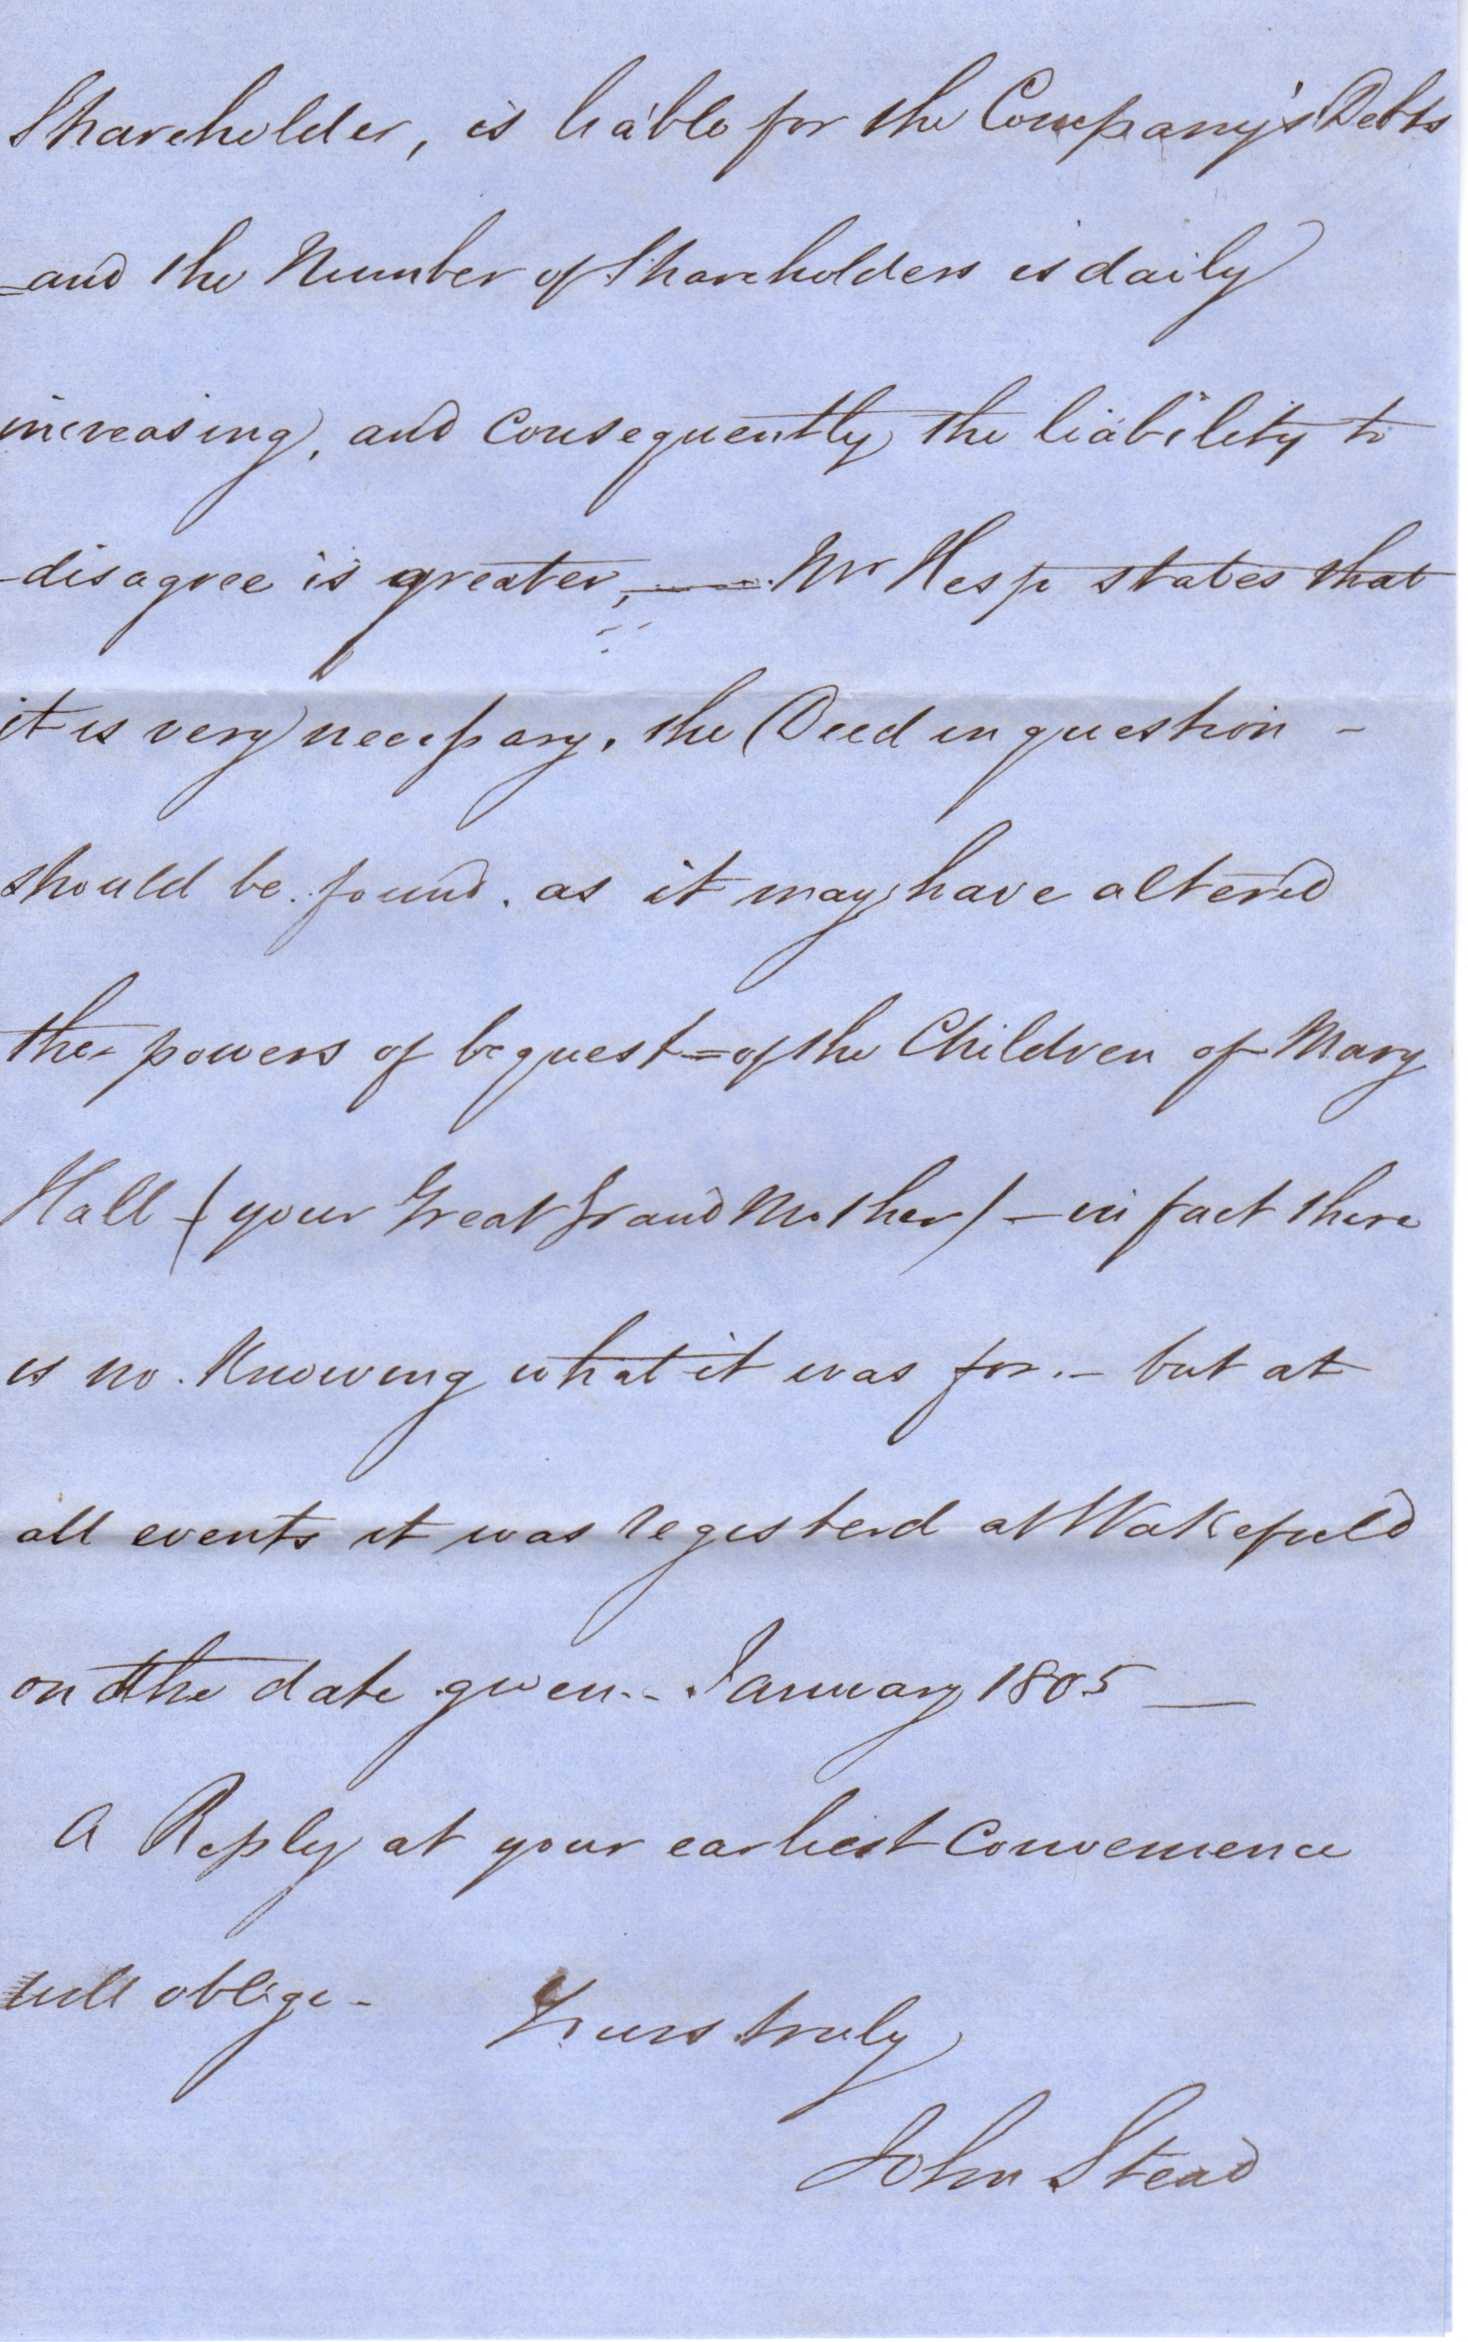 Shareholder, is liable for the Company's Debts
=and the Number of Shareholders is daily
increasing, and consequently the liability to
-disagree is greater, — Mr Hesp states that
it is very necessary, the Deed in question -
should be found. as it may have altered
the powers of bequest = of the Children of Mary
Hall (your Great Grand Mother) - in fact there
is no knowing what it was for. - but at
all events it was registerd at Wakefield
on the date given.. January 1805 —
A Reply at your earliest Convenience
will oblige -
Yours truly
John Stead